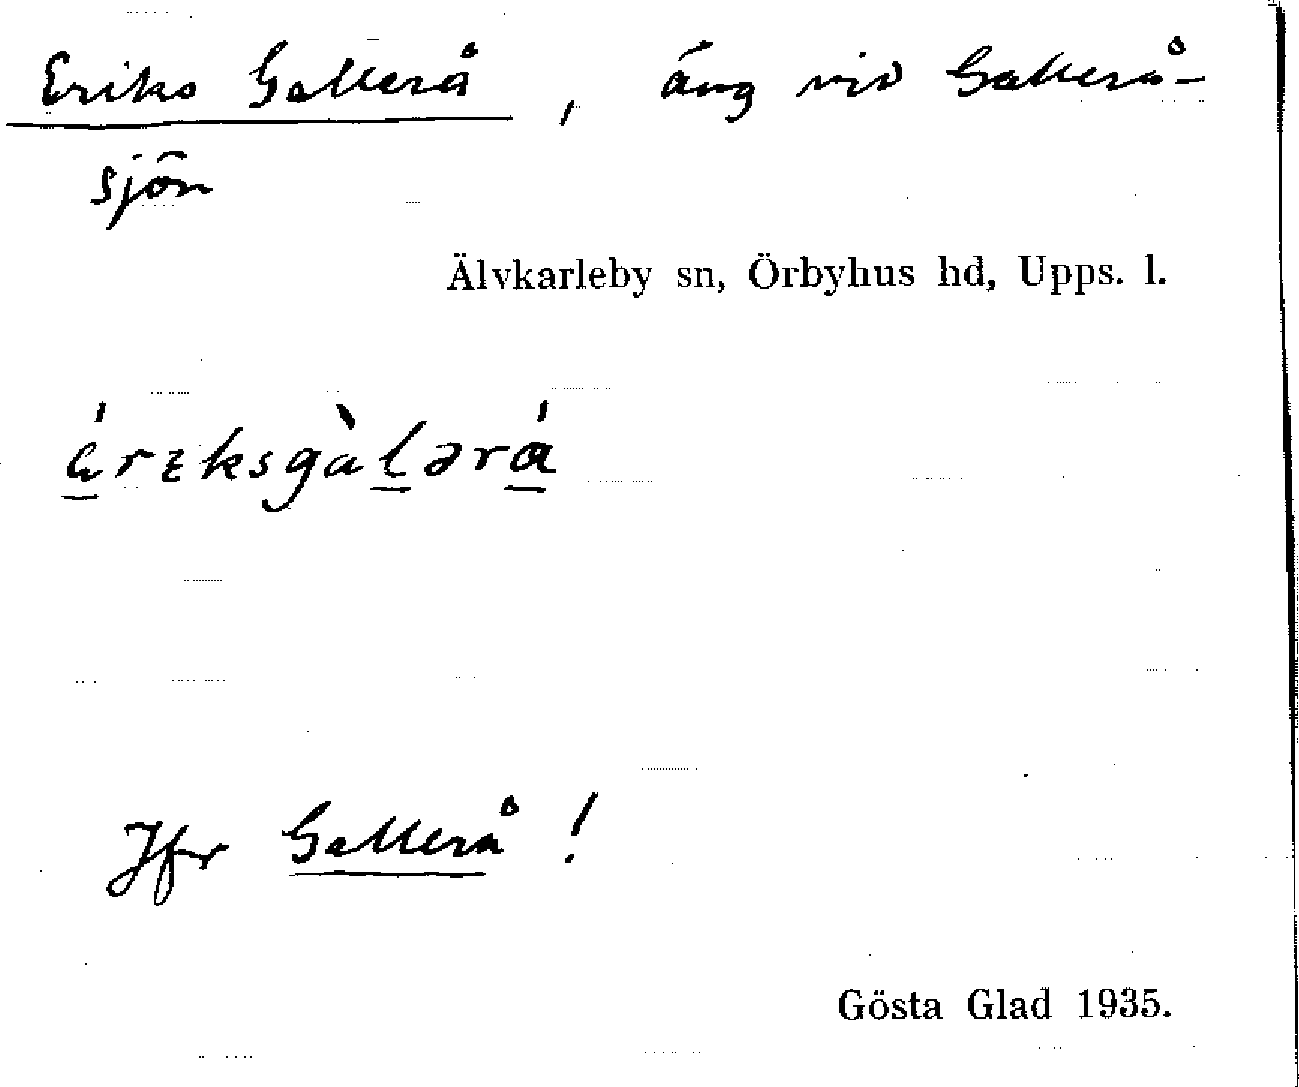 Eriks Gallerå, äng vid Gallerå-
sjön
Älvkarleby sn, Örbyhus hd, Upps. l.
Jfr Gallerå!
Gösta Glad 1935.